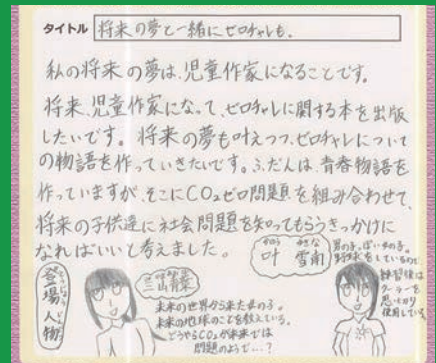 タイトル 将来の夢と一緒にゼロチャレも。
私の将来の夢は、児童作家になることです。
将来、児童作家になって、ゼロチャレに関する本を出版
したいです。将来の夢も叶えつつ、ゼロチャレについて
の物語を作っていきたいです。ふだんは、青春物語を
作っていますが、そこにCO₂ゼロ問題を組み合わせて、
将来の子供達に社会問題を知ってもらうきっかけに
なればいいと考えました。
登場人物
未来の世界から来た女の子。
未来の地球のことを教えている。
どうやらCO₂が未来では
問題のようで…?
叶
男の子っぽい女の子。
野球をしているので
練習後は
クーラーを
思いっきり
使用している。